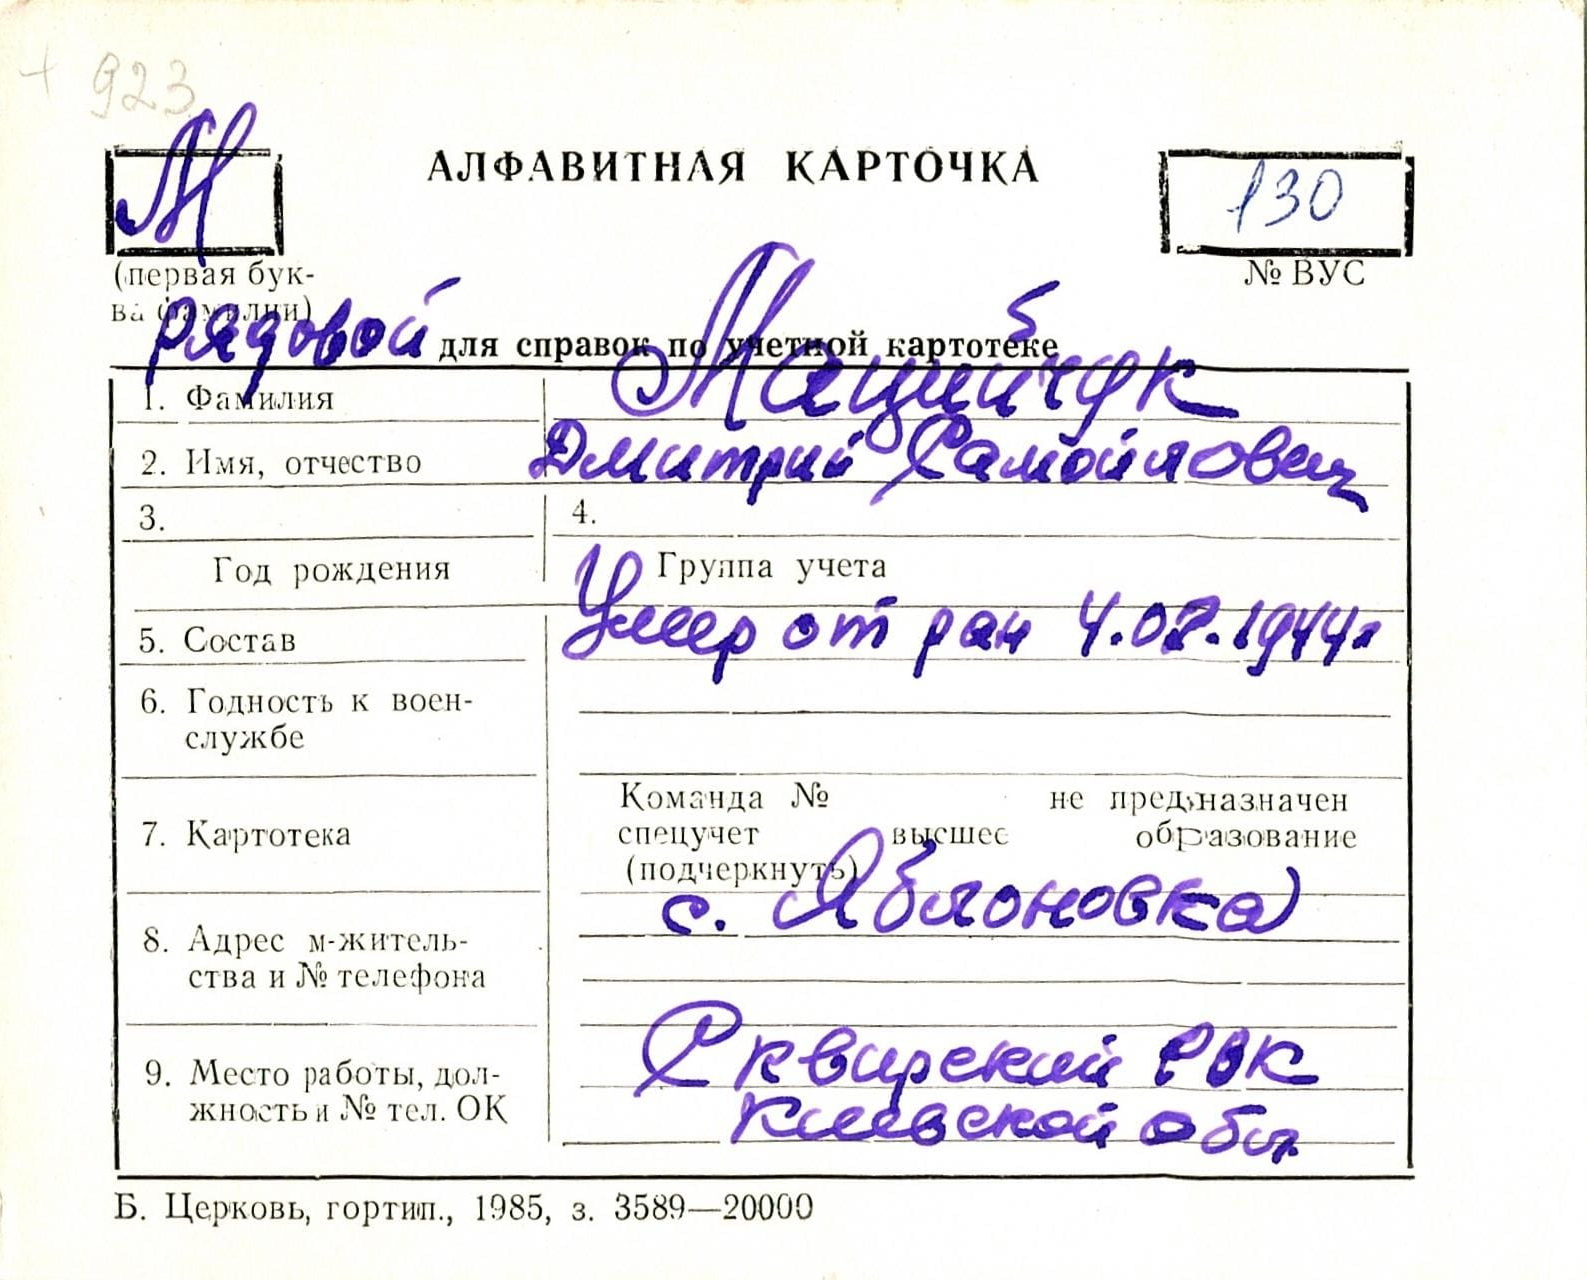 + 923
М
АЛФАВИТНАЯ КАРТОЧКА
130
(первая бук-
ва фамилии)
№ ВУС
рядовой
для справок по учетной картотеке
1. Фамилия
2. Имя, отчество Дмитрий Самойлович
3. 4.
Год рождения Группа учета
Умер от ран 4.02.1944г
5. Состав
6. Годность к воен-
службе
Команда № не предназначен
7. Картотека спецучет высшее образование
(подчеркнуть)
с. Яблоновка
8. Адрес м-житель-
ства и № телефона
Сквирский РВК
9. Место работы, дол-
жность и № тел. ОК
Киевской обл.
Б. Церковь, гортип., 1985, з. 3589—20000